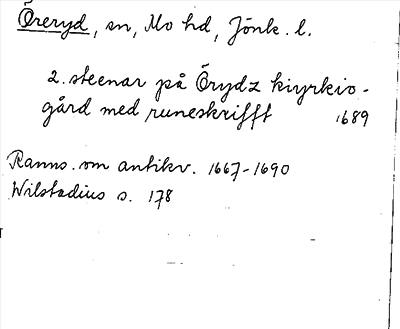 Öreryd, sn, Mo hd, Jönk. l.
2. steenar på Örydz kiyrkio-
gård med runeskrifft 1689
Ranns. om antikv. 1667-1690
Wilstadius s. 178